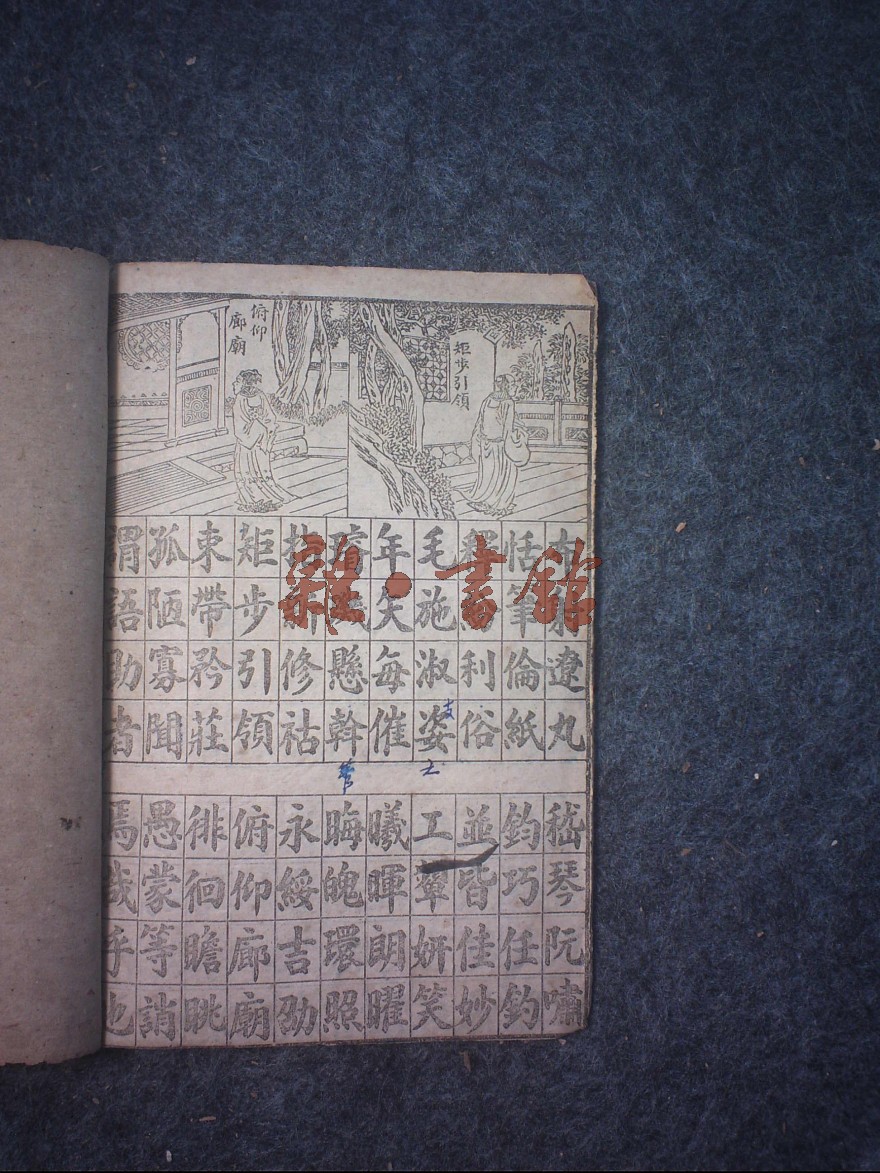 矩步引領
俯仰
廊廟
布射遼丸
恬筆倫紙
釋紛利俗
毛施淑姿
年矢每催
璿璣懸幹
指薪修祜
矩步引領
束帶矜莊
孤陋寡聞
謂語助者
嵇琴阮嘯
鈞巧任釣
並皆佳妙
工顰妍笑
曦暉朗曜
晦魄環照
永綏吉劭
俯仰廊廟
徘徊瞻眺
愚蒙等誚
焉哉乎也
雜·書館